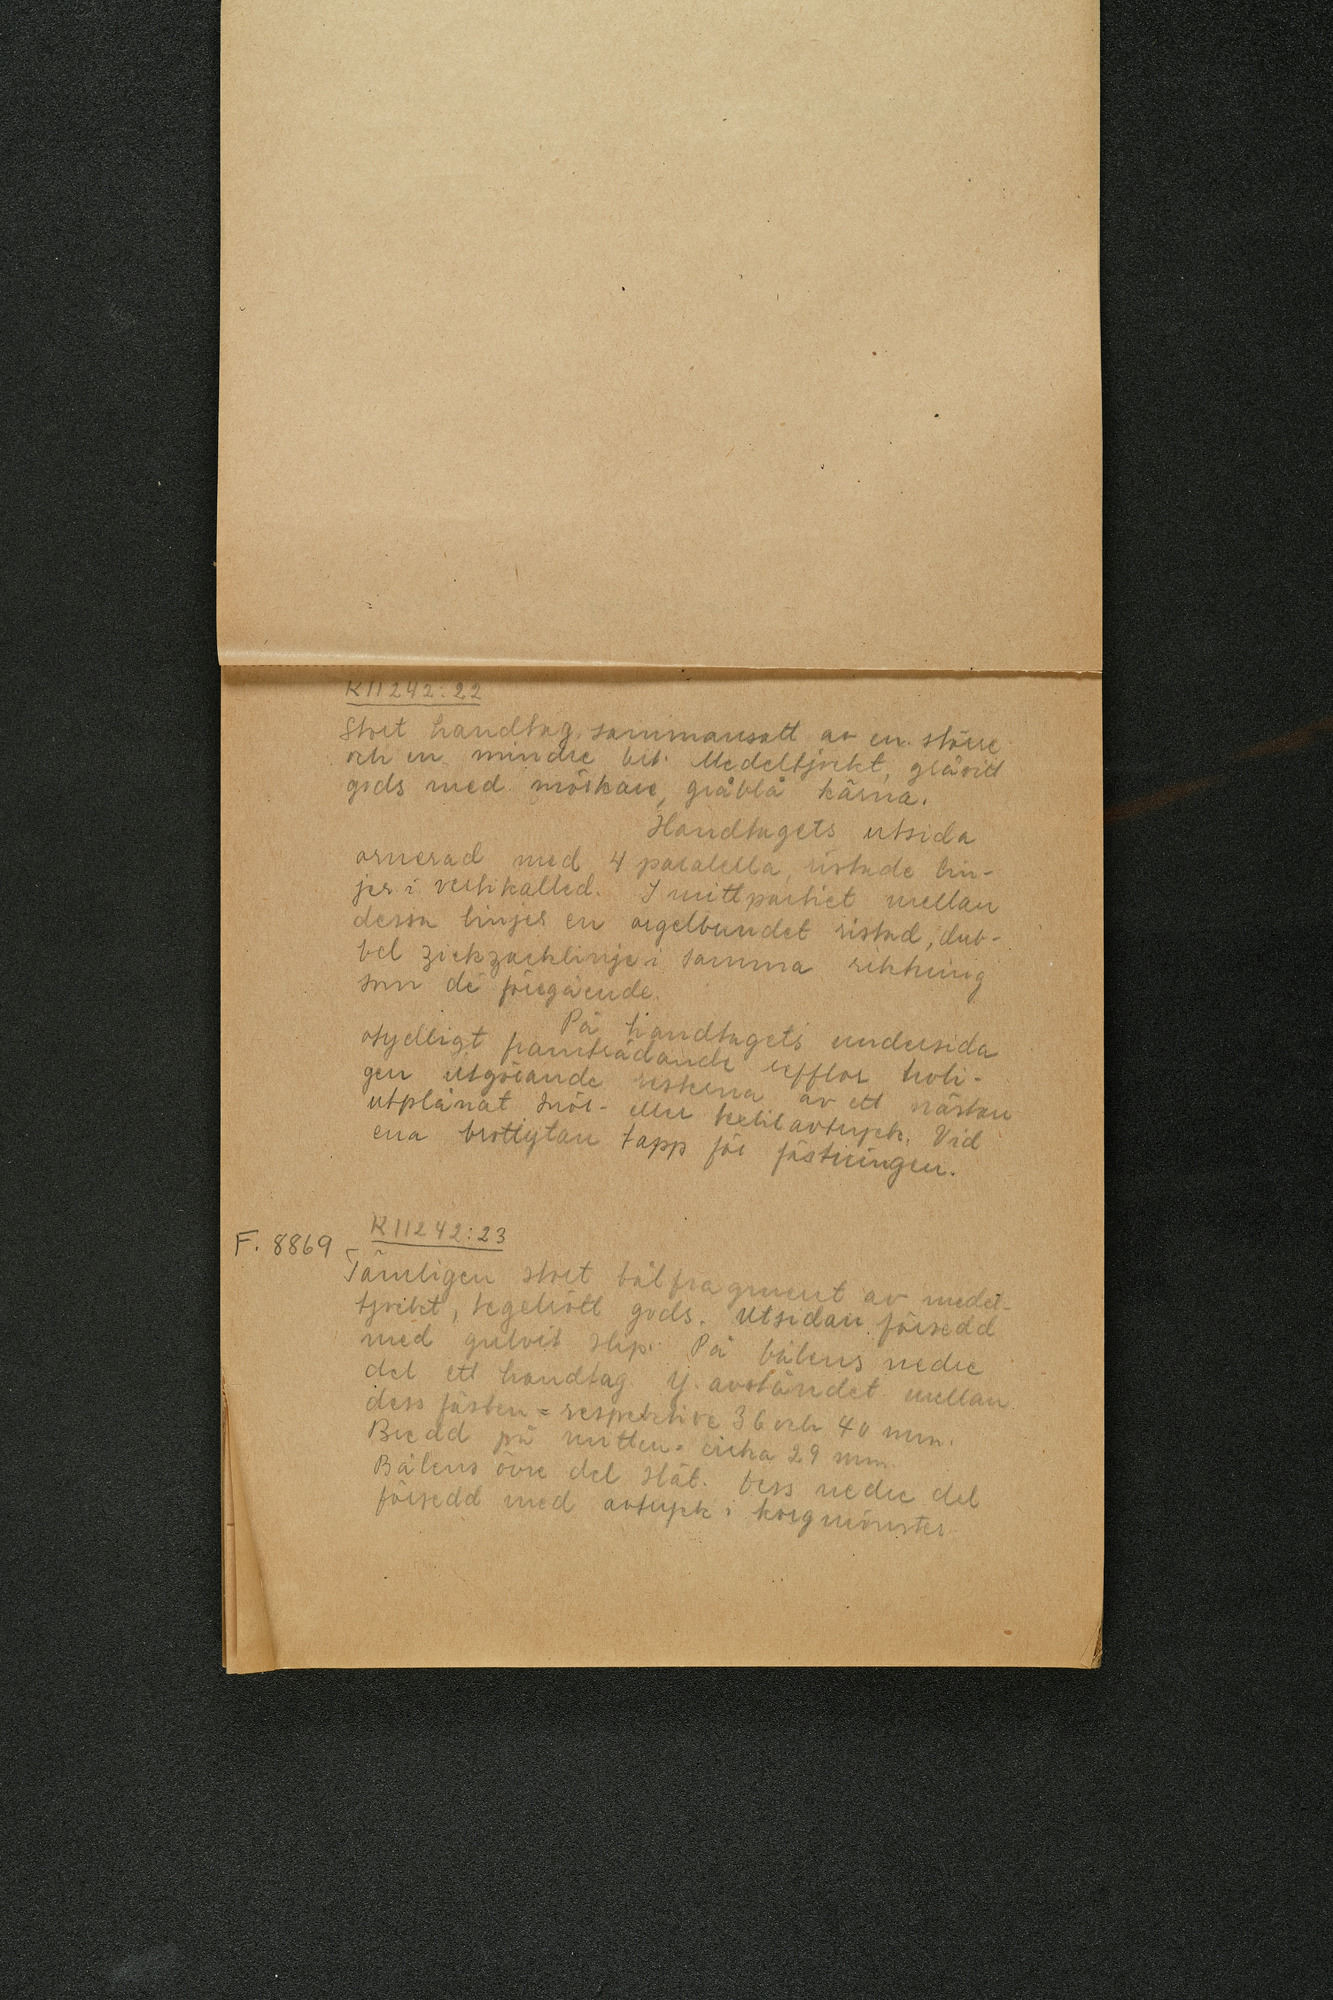 K11242:22
Stort handtag, sammansatt av en större
och en mindre bit. Medeltjockt, gråvitt
gods med mörkare, gråblå kärna.
Handtagets utsida
ornerad med 4 paralella, ristade lin-
jer i vertikalled. I mittpartiet mellan
dessa linjer en oregelbundet ristad, dub-
bel zickzacklinje i samma riktning
som de föregående.
På handtagets undersida
otydligt framträdande refflor troli-
gen utgörande resterna av ett nästan
utplånat snör- eller textilavtryck. Vid
ena brottytan tapp för fästningen.
K11242:23
F. 8869
Tämligen stort bålfragment av medel-
tjockt, tegelrött gods. Utsidan försedd
med gulvit slip. På bålens nedre
del ett handtag. Y. avståndet mellan
dess fästen = respektive 36 och 40 mm.
Bredd på mitten = cirka 29 mm.
Bålens övre del slät. Dess nedre del
försedd med avtryck i korgmönster.